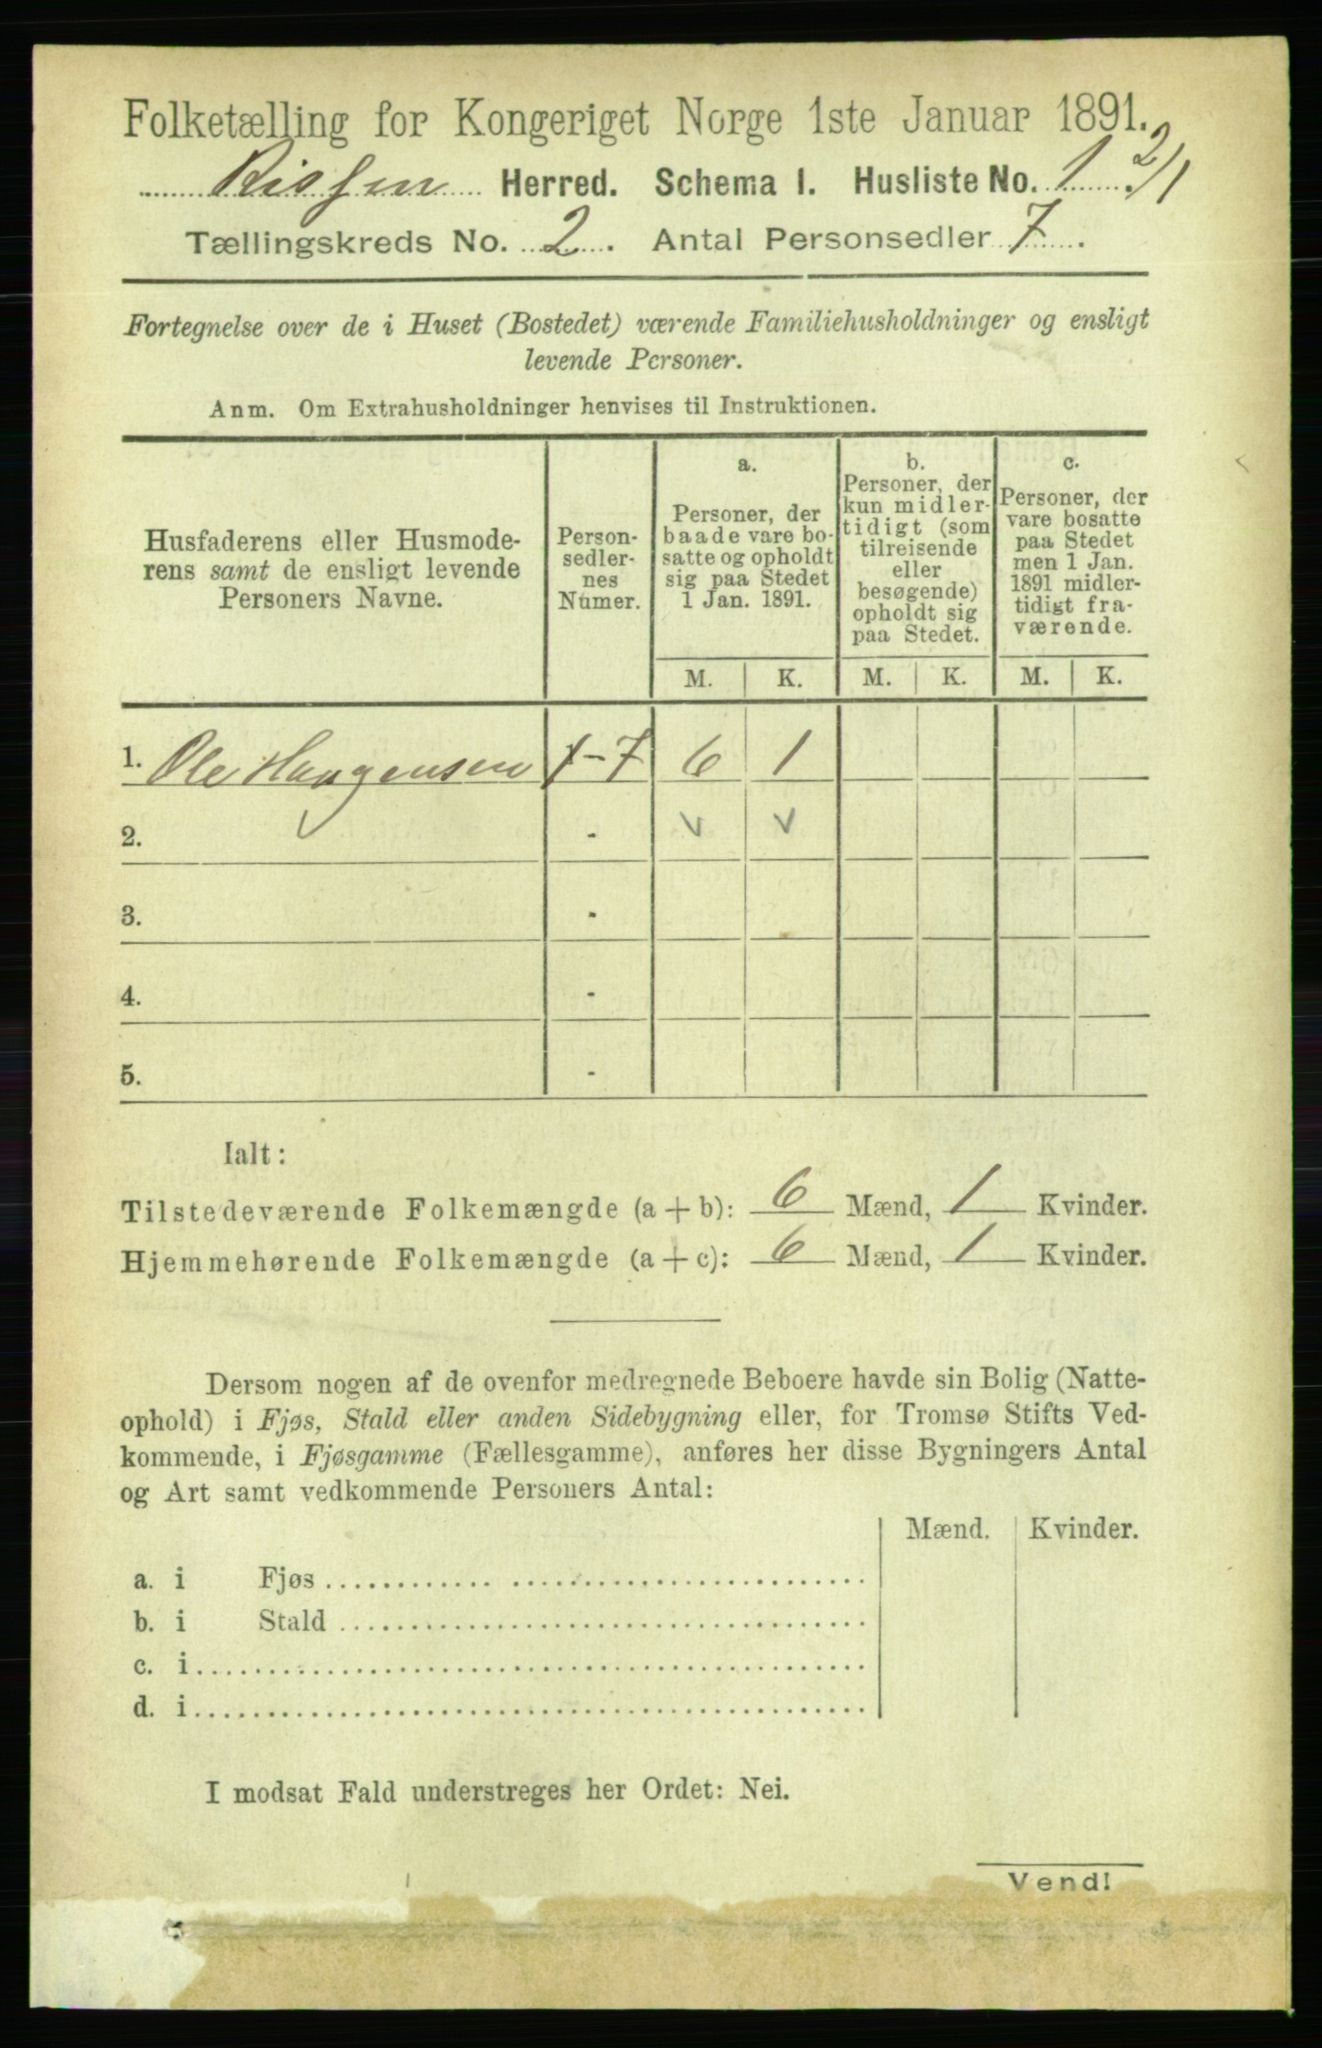 Folketælling for Kongeriget Norge 1ste Januar 1891.
Rissen Herred. Schema I. Husliste No. 1. 2/1
Tællingskreds No. 2. Antal Personsedler 7.
Fortegnelse over de i Huset (Bostedet) værende Familiehusholdninger og ensligt
levende Personer.
Anm. Om Extrahusholdninger henvises til Instruktionen.
Husfaderens eller Husmode-
rens samt de ensligt levende
Personers Navne.
Person-
sedler-
nes
Numer.
a.
Personer, der
baade vare bo-
satte og opholdt
sig paa Stedet
1 Jan. 1891.
b.
Personer, der
kun midler-
tidigt (som
tilreisende
eller
besøgende)
opholdt sig
paa Stedet.
c.
Personer, der
vare bosatte
paa Stedet
men 1 Jan.
1891 midler-
tidigt fra-
værende.
M. K. M. K. M. K.
1. Ole Haagensen 1-7 6 1
2. - v v
3. -
4. -
5. -
Ialt:
Tilstedeværende Folkemængde (a + b): 6 Mænd, 1 Kvinder.
Hjemmehørende Folkemængde (a + c): 6 Mænd, 1 Kvinder.
Dersom nogen af de ovenfor medregnede Beboere havde sin Bolig (Natte-
ophold) i Fjøs, Stald eller anden Sidebygning eller, for Tromsø Stifts Ved-
kommende, i Fjøsgamme (Fællesgamme), anføres her disse Bygningers Antal
og Art samt vedkommende Personers Antal:
Mænd. Kvinder.
a. i Fjøs
b. i Stald
c. i
d. i
I modsat Fald understreges her Ordet: Nei.
Vend!